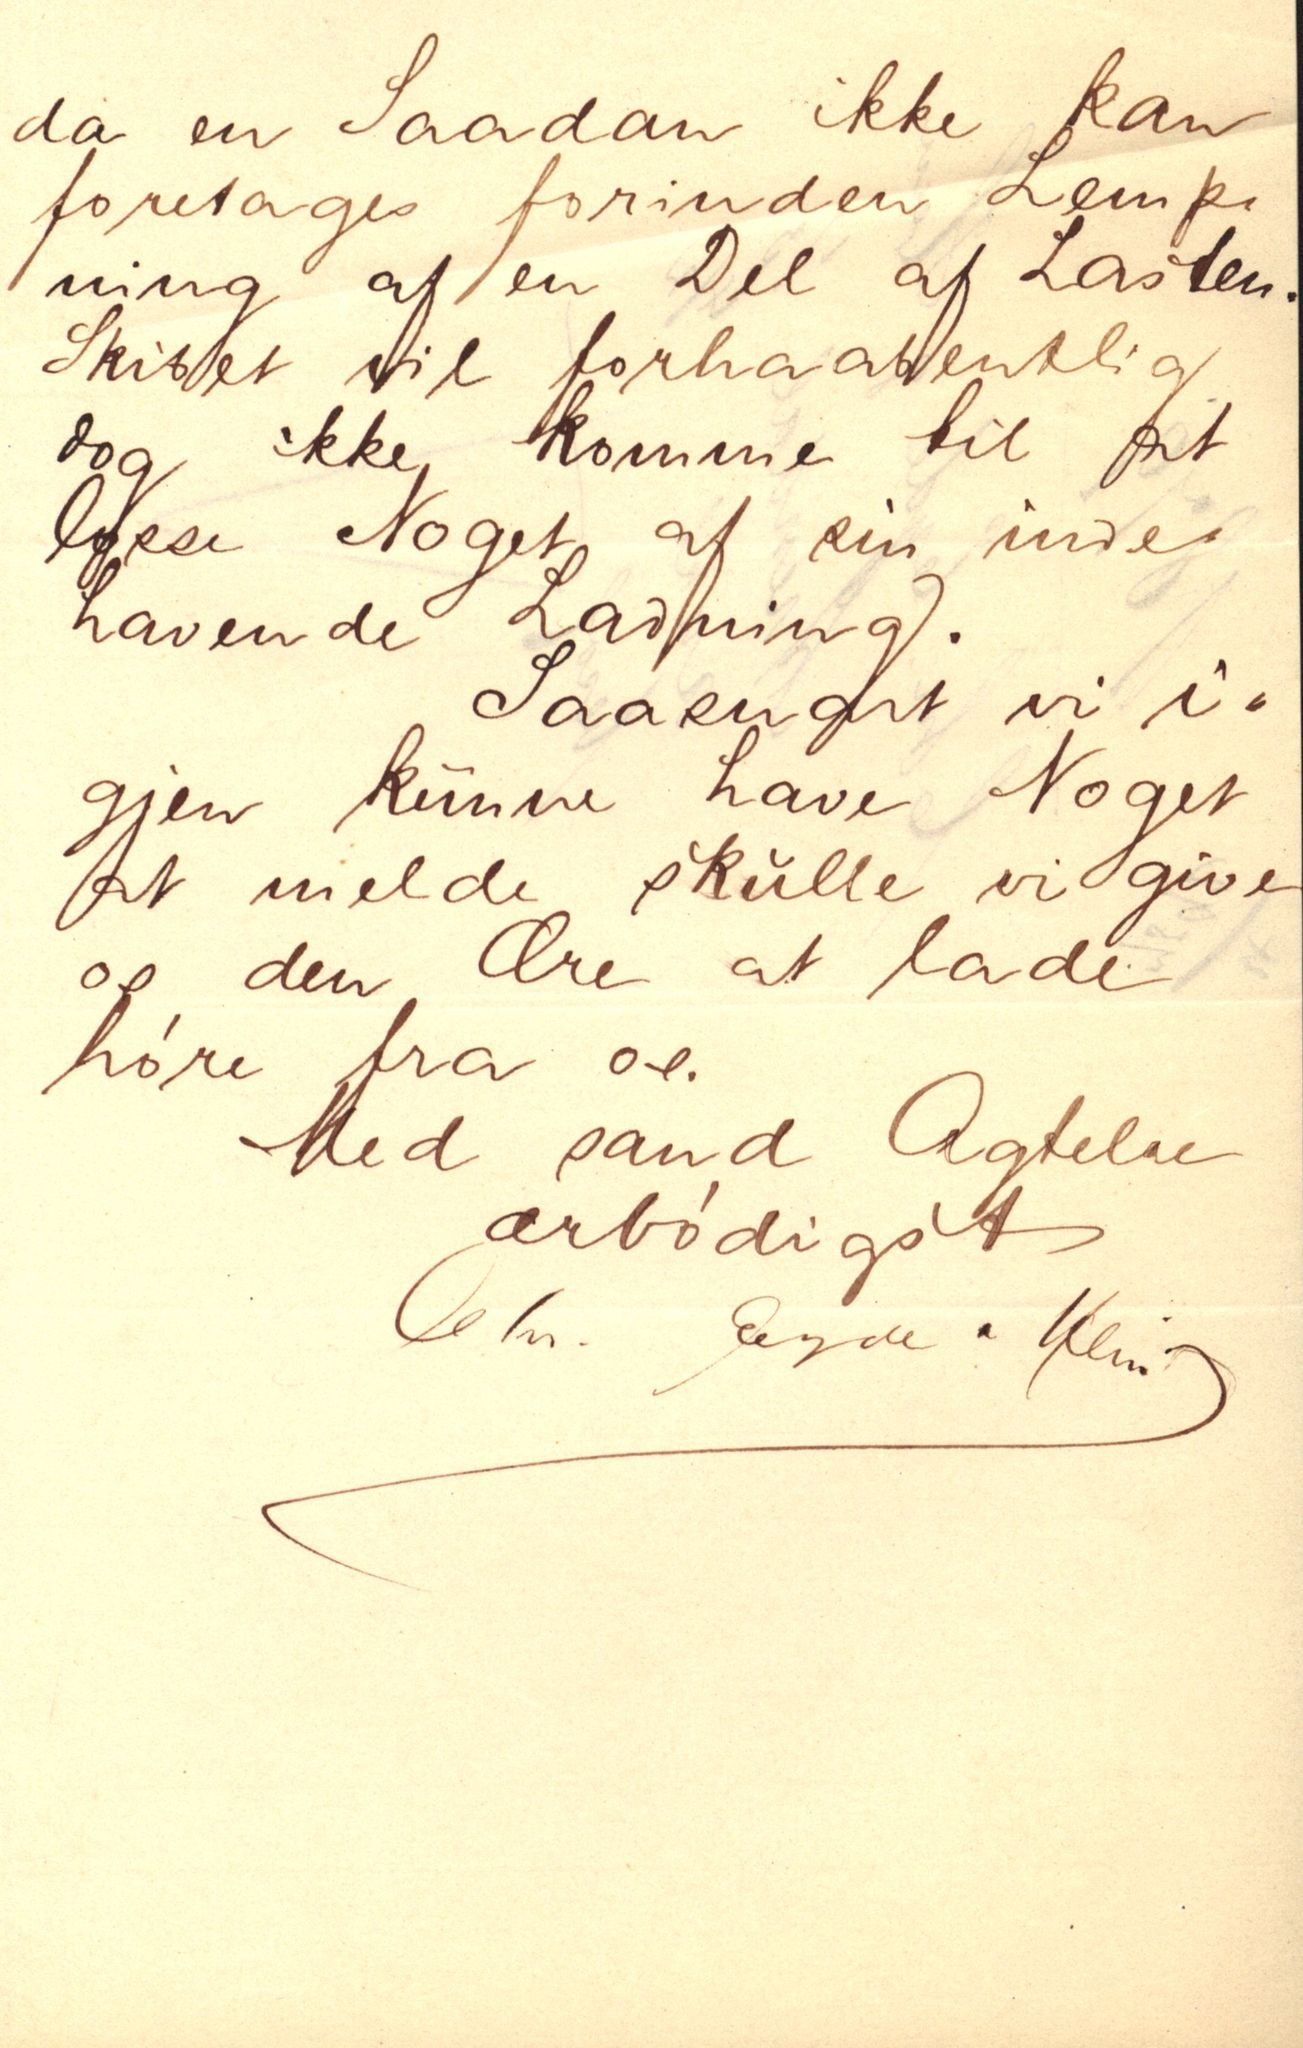 da en Saadan ikke kan
foretages forinden Lemp-
ning af en Del af Lasten.
Skibet vil forhaabentlig
dog ikke komme til at
losse Noget af sin inde-
havende Ladning.
Saasnart vi i-
gjen kunne have Noget
at melde skulle vi give
os den Ære at lade
höre fra os.
Med sand Agtelse
ærbödigst